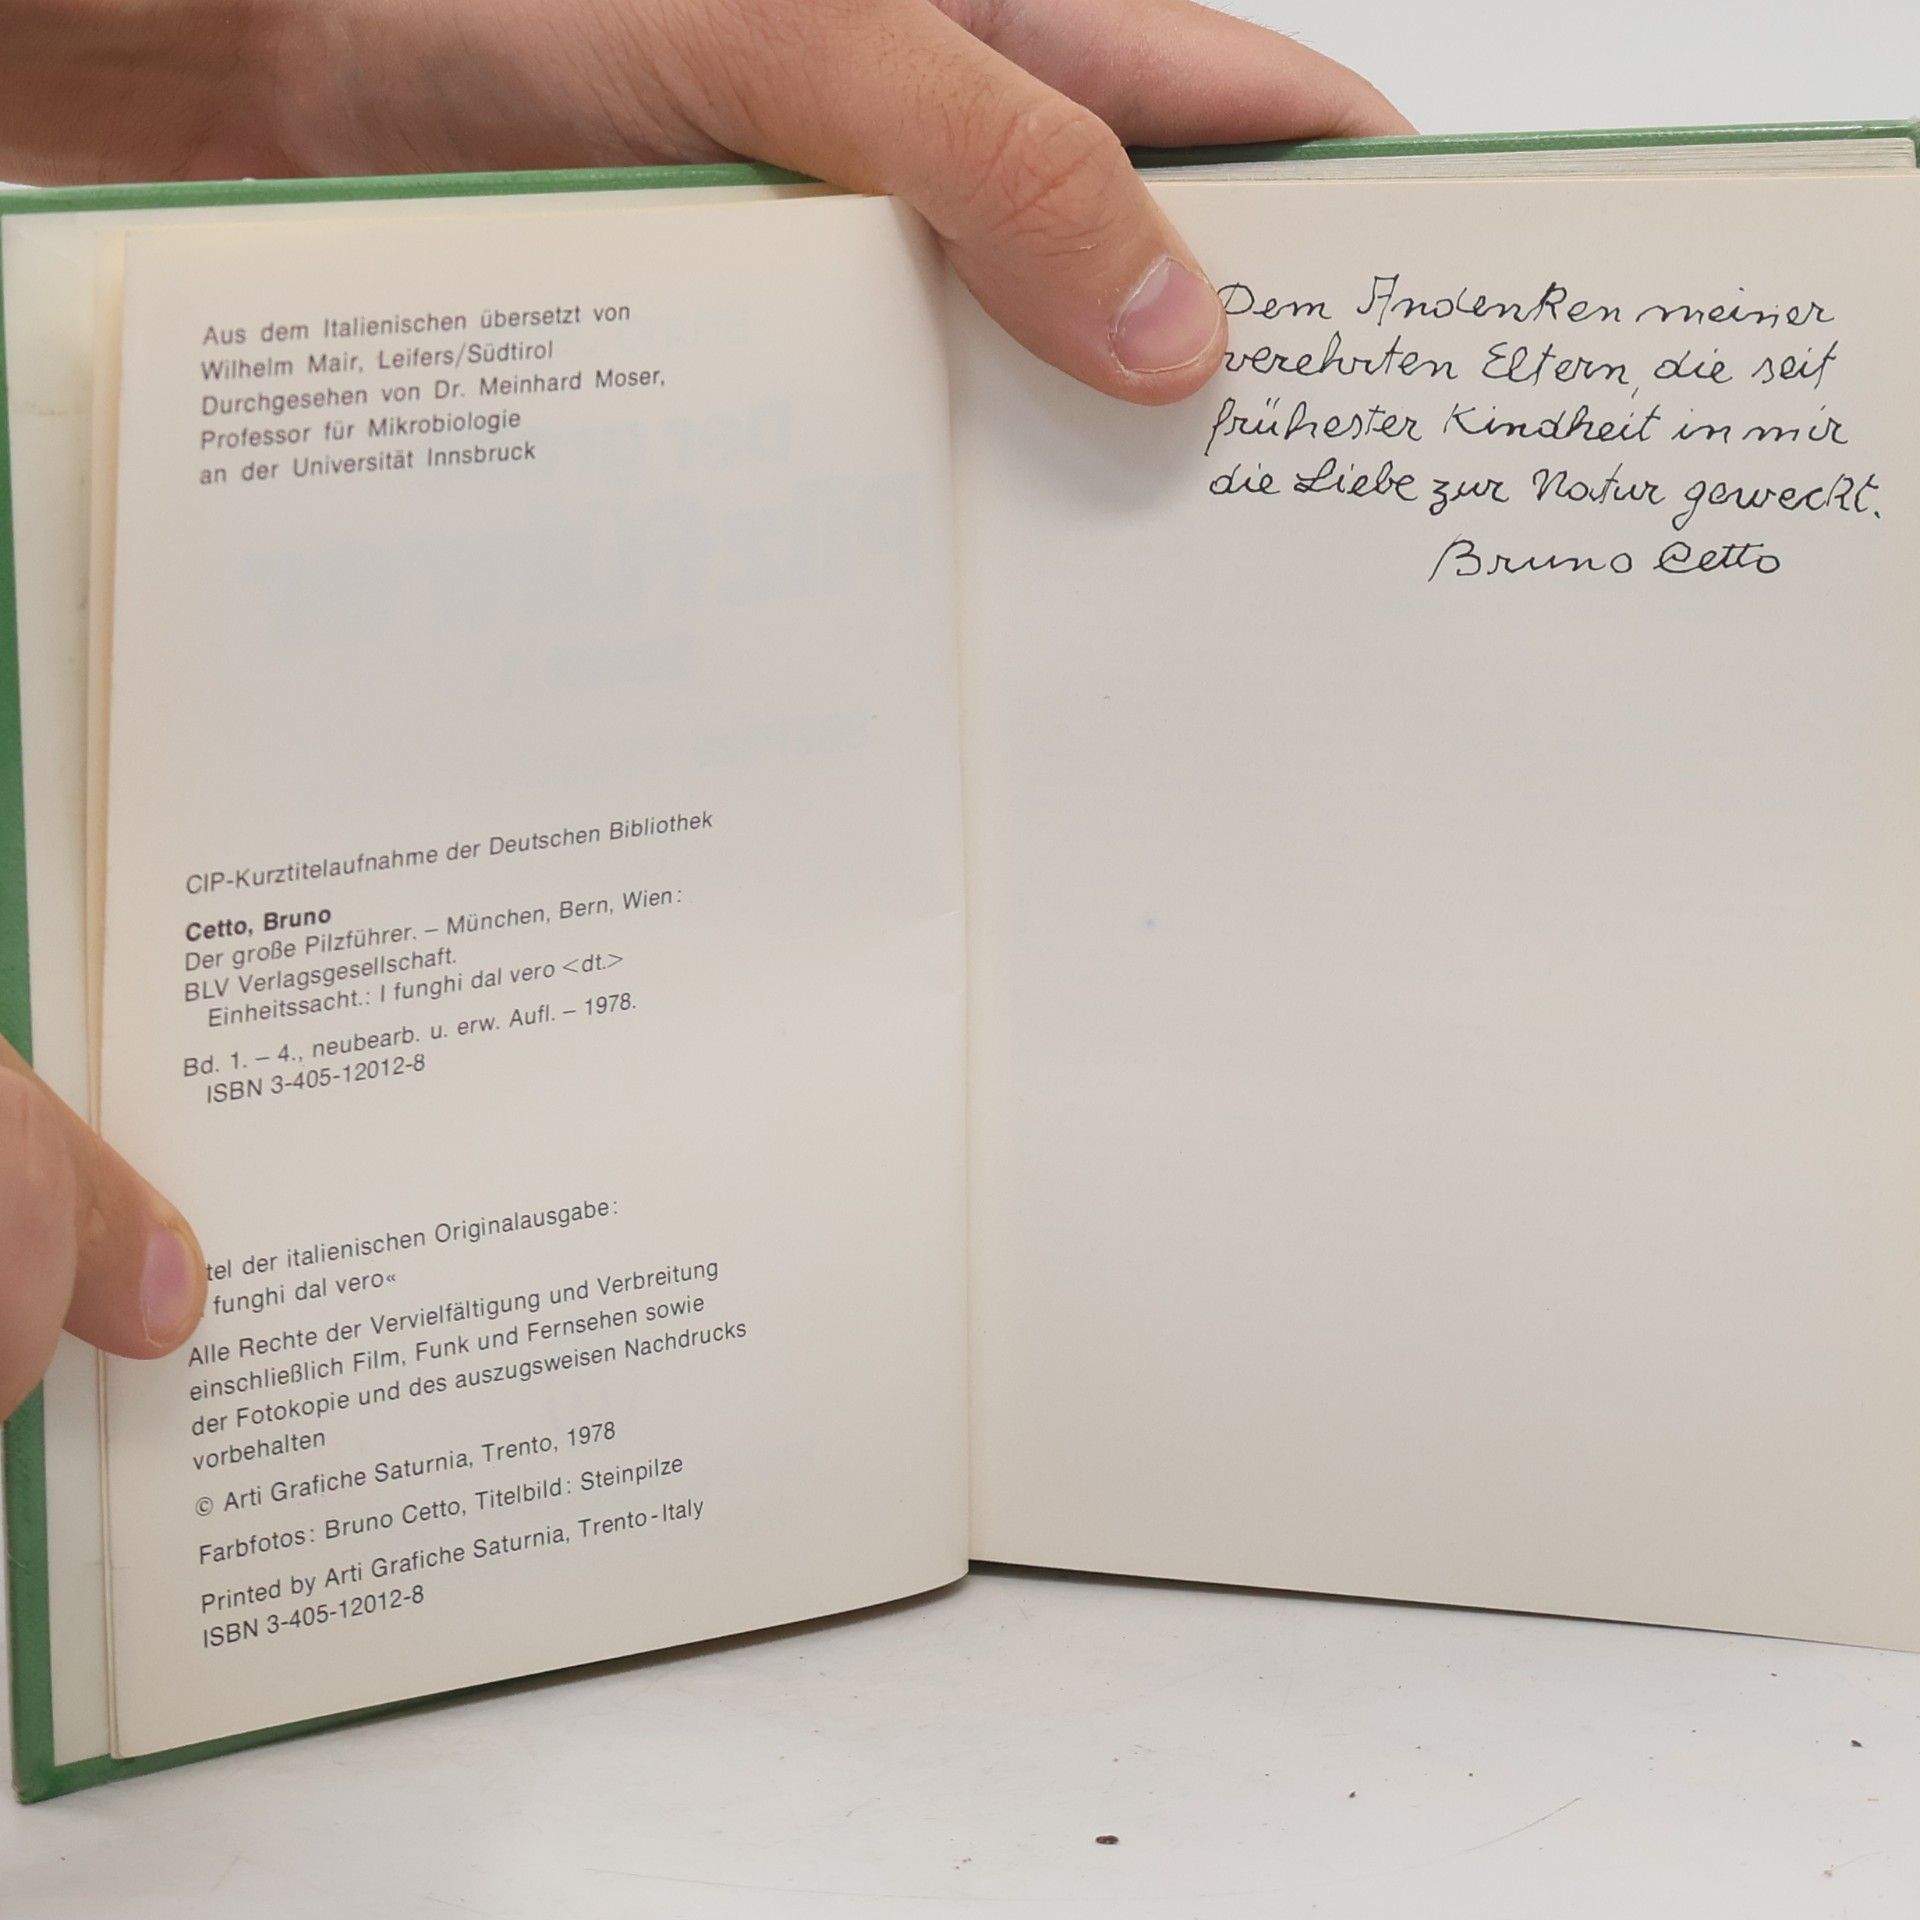 Aus dem Italienischen übersetzt von
Wilhelm Mair, Leifers/Südtirol
Durchgesehen von Dr. Meinhard Moser,
Professor für Mikrobiologie
an der Universität Innsbruck
CIP-Kurztitelaufnahme der Deutschen Bibliothek
Cetto, Bruno
Der große Pilzführer. – München, Bern, Wien:
BLV Verlagsgesellschaft.
Einheitssacht.: I funghi dal vero <dt.>
Bd. 1. – 4., neubearb. u. erw. Aufl. – 1978.
ISBN 3-405-12012-8
tel der italienischen Originalausgabe:
funghi dal vero«
Alle Rechte der Vervielfältigung und Verbreitung
einschließlich Film, Funk und Fernsehen sowie
der Fotokopie und des auszugsweisen Nachdrucks
vorbehalten
© Arti Grafiche Saturnia, Trento, 1978
Farbfotos: Bruno Cetto, Titelbild: Steinpilze
Printed by Arti Grafiche Saturnia, Trento-Italy
ISBN 3-405-12012-8
Dem Andenken meiner
verehrten Eltern, die seit
frühester Kindheit in mir
die Liebe zur Natur geweckt.
Bruno Cetto